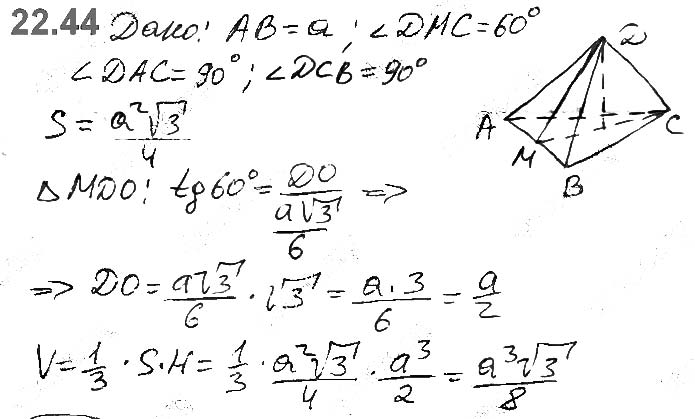 22.44 Дано: AB = a; ∠DMC = 60°
∠DAC = 90°; ∠DCB = 90°
S = a²√3 / 4
△MDO: tg60° = DO / (a√3 / 6) =>
=> DO = a√3 / 6 · √3 = a·3 / 6 = a / 2
V = 1/3 · S·H = 1/3 · a²√3 / 4 · a³ / 2 = a³√3 / 8
D
A
C
M
B